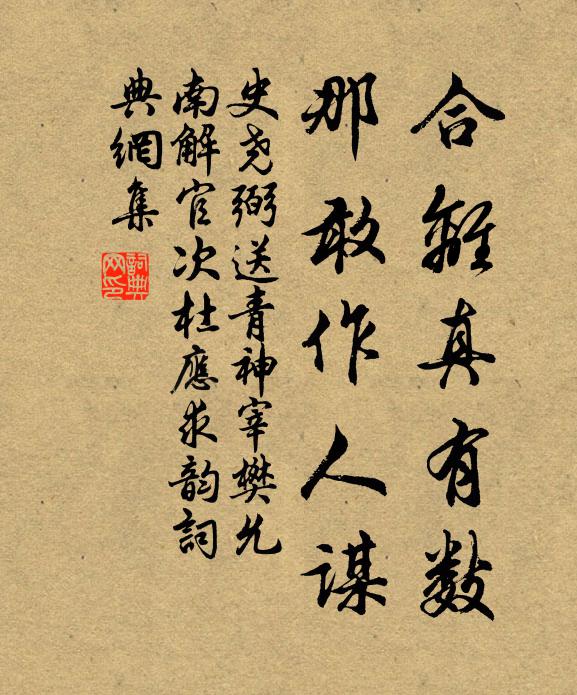 合離真有数
那敢作人謀
史尧弼送青神宰樊允
南解官次杜應求韵詞
典網集
詞典網印